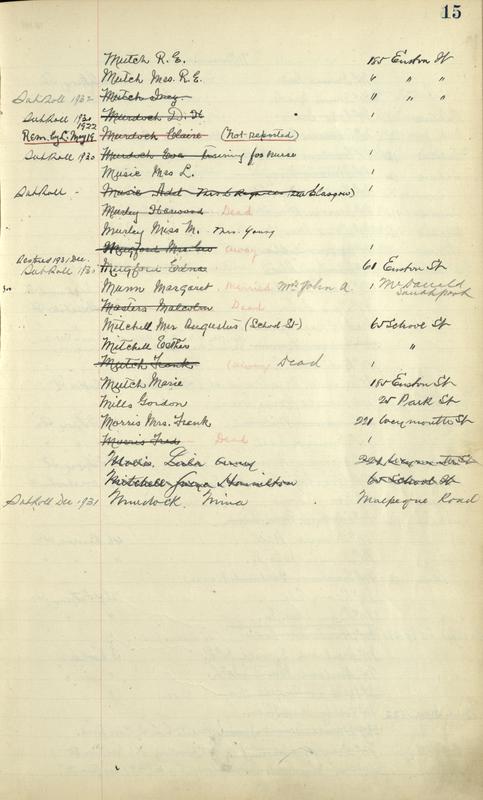 15
Mutch R. E. 185 Euston St
Mutch Mrs. R. E. " " "
Sub Roll 1932 Mutch Ivey " " "
Sub Roll 1930 Murdoch D. H
1922
Rem. by L. May 19 Murdoch Claire (Not-reported)
Sub Roll 1930 Murdoch Eva Training for Nurse
Music Mrs L.
Sub Roll Music Adel Mrs (Glasgow)
Murley Harwood Dead
Murley Miss M. Mrs. Young
Mugford Mrs. Geo away
Restored 1931 Dec.
Sub Roll 1930 Mugford Edna 60 Euston St
Munn Margaret married Mrs John A. McDonald
Southport
Masters Malcolm Dead
Mitchell Mrs Augustus (School St) 60 School St
Mitchell Esther "
Mutch Frank (away) Dead
Mutch Marie 185 Euston St
Mills Gordon 25 Park St
Morris Mrs. Frank 221 Weymouth St
Morris Fred Dead
Lula 221 Weymouth St
Mitchell Hamilton 60 School St
Sub Roll Dec 1931 Murdock, Mina Malpeque Road